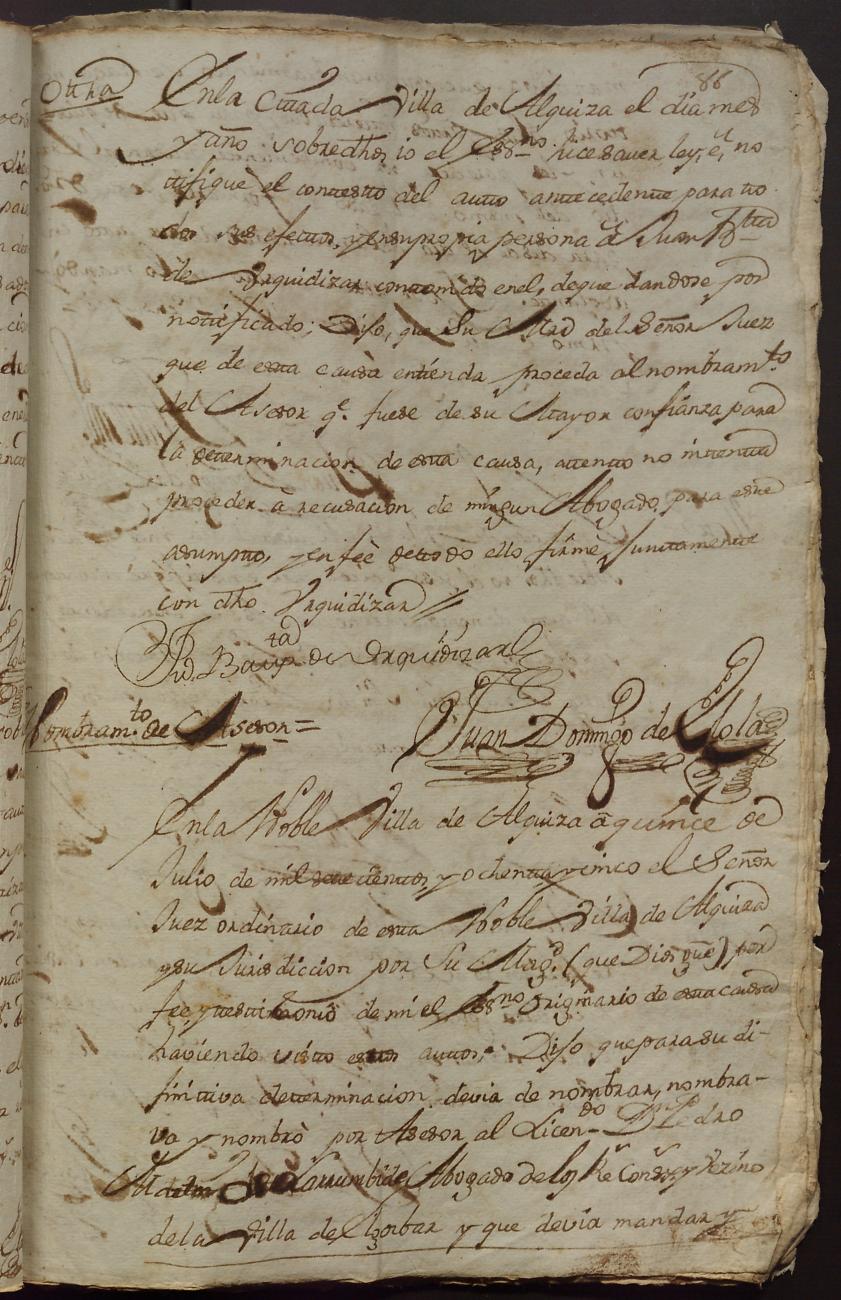 86
Otra
En la Citada Villa de Alquiza el dia mes
y año sobredhos, io el Essno. hice saver, ley, é, no
tifiqué el contestto del autto anttecedente para tto
dos sus efecttos, y en su propria persona á Juan Btta
de Urquidizar conttenido en el, de que dandose por
nottificado; Dijo, que Su Mrd del Señor Juez
que de estta causa entienda proceda al nombramto.
del Asesor qe. fuese de su Mayor confianza para
la determinacion de estta causa, attentto no inttentta
proceder á recusacion de ningun Abogado, para estte
asumptto, y en feé de ttodo ello, firmé, junttamentte
con dho. Urquidizar //
Jn. Bauptta de Urquidizar
Nombramto. de Asesor =
Juan Domingo de
En la Noble Villa de Alquiza á quince de
Julio de mil settecienttos, y ochentta y cinco el Señor
Juez ordinario de estta Noble Villa de Alquiza
y su Jurisdiccion por Su Magd. (que Dios gue) por
fee y testtimonio de mi el Essno originario de estta causa
haviendo visto esttos auttos, Dijo que para su di-
finittiva determinacion devia de nombrar, nombra-
va y nombró por Asesor al Licendo Dn Pedro
de Larrumbide, Abogado de los Rs Consos, y Vezino
de la Villa de Aorbar y que devia mandar y